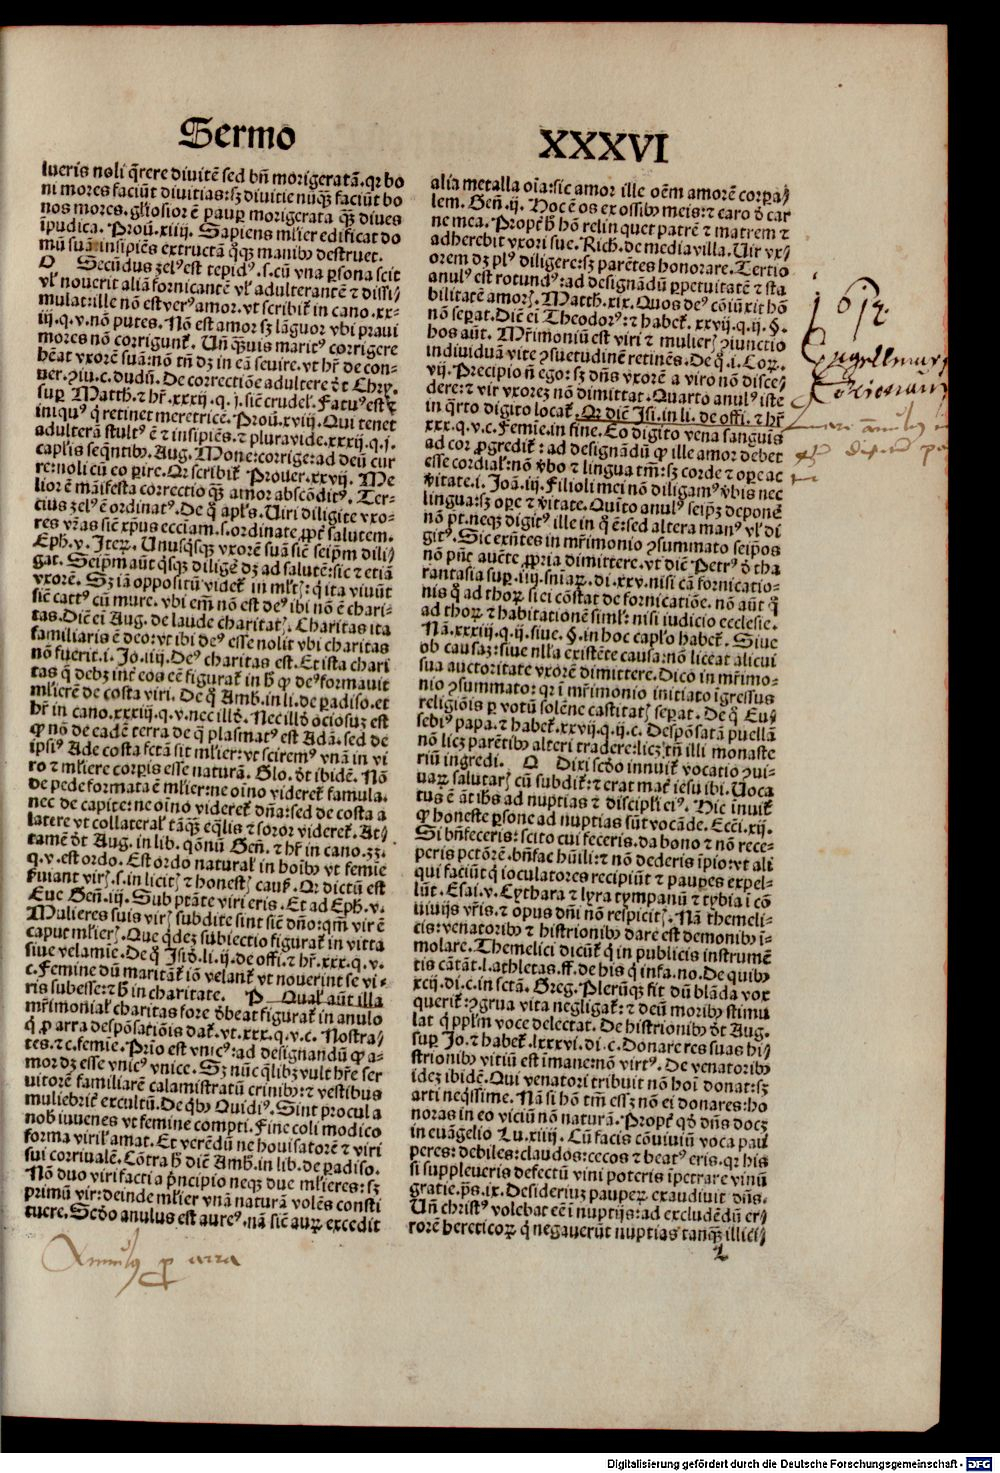 Sermo
XXXVI
lueris noli q̄rere diuitē sed bn̄ morigeratā. qꝛ bo
ni mores faciūt diuitias: sꝫ diuitie nūqꝫ faciūt bo
nos mores. gl̓iosior ē paup̲ morigerata qꝫ diues
īpudica. Prou̓. xiiij. Sapiens ml̓ier edificat do
mū suā. insipiēs extructā q̊ꝫ manibꝰ destruet.
O Secūdus zelꝰ est tepidꝰ. s. cū vna p̲sona scit
vl̓ nouerit aliā fornicantē vl̓ adulterantē ⁊ dissi/
mulat: ille nō est verꝰ amor. vt scribit̉ in cano. xx=
iij. q. v. nō putes. Nō est amor sꝫ lāguor vbi praui
mores nō corrigunt̉. Un̄ q̄uis maritꝰ corrigere
hēat vxorē suā: nō tn̄ dꝫ in eā seuire. vt hr̄ de con=
uer. ꝯiu. c. dudū. De correctiōe adultere d̓t Chry.
sup̲ Matth. ⁊ hr̄. xxxij. q. j. sic̄ crudel̓. Fatuꝰ est ⁊
iniquꝰ q̓ retinet meretricē. Prou̓. xviij. Qui tenet
adulterā stultꝰ ē ⁊ insipiēs. ⁊ pluravide. xxxij. q. j.
cap̓lis seq̄ntibꝰ. Aug. Mone: corrige: ad deū cur
re: noli cū eo p̲ire. Qꝛ scribit̉ Prouer. xxvij. Me
lior ē māifesta correctio qꝫ amor abscōditꝰ. Ter=
cius zelꝰ ē ordinatꝰ. De q̊ apl̓s. Uiri diligite vxo=
res vr̄as sic̄ xp̄us ecc̄iam. s. ordinate ꝓpt̓ salutem.
Eph. v. Iteꝝ. Unusq̓sqꝫ vxorē suā sic̄ seip̄m dili/
gat. Seip̄m aūt q̓sqꝫ diligē dꝫ ad salutē: sic ⁊ etiā
vxorē. Sꝫ iā oppositū videt̉ in ml̓tꝭ: q̓ ita viuūt
sic̄ cattꝰ cū mure. vbi em̄ nō est deꝰ ibi nō ē chari=
tas. Dic̄ ei̓ Aug. de laude charitatꝭ. Charitas ita
familiaris ē deo: vt ibi deꝰ esse nolit vbi charitas
nō fuerit. i. Jo. iiij. Deꝰ charitas est. Et ista chari
tas q̄ debꝫ int̓ eos eē figurat̉ in h̓ ꝙ deꝰ formauit
ml̓ierē de costa viri. De q̊ Amb. in li. de p̲adiso. et
hr̄ in cano. xxxiij. q. v. nec illd̓. Nec illd̓ ociosuꝫ est
ꝙ nō de eadē terra de q̄ plasmatꝰ est Adā. sed de
ipsiꝰ Ade costa fctā sit ml̓ier: vt sciremꝰ vnā in vi
ro ⁊ ml̓iere corp̲is esse naturā. Glo. d̓t ibidē. Nō
de pede formata ē ml̓ier: ne oīno videret̉ famula.
nec de capite: ne oīno videret̉ dn̄a: sed de costa a
latere vt collateral̓ tāqꝫ eq̄lis ⁊ soror videret̉. At/
tamē d̓t Aug. in lib. q̄onū Gen̄. ⁊ hr̄ in cano. 33.
q. v. est ordo. Est ordo natural̓ in hoībꝰ vt femie
s̓uiant virꝭ. s. in licitꝭ ⁊ honestꝭ causꝭ. Qꝛ dictū est
Eue Gen̄. iij. Sub ptāte viri eris. Et ad Eph. v.
Mulieres suis virꝭ subdite sint sic̄ dn̄o: qm̄ vir ē
caput ml̓ierꝭ. Que q̓dez subiectio figurat̉ in vitta
siue velamie. De q̊ Isid̓. li. ij. de offi. ⁊ hr̄. xxx. q. v.
c. Femine dū maritāt̉ iō velant̉ vt nouerint se vi=
ris subesse: ⁊ h̓ in charitate. P Qual̓ aūt illa
mr̄imonial̓ charitas fore d̓beat figurat̉ in anulo
q̓ ꝓ arra despōsatiōis dat̉. vt. xxx. q. v. c. Nostra/
tes. ⁊ c. femie. Prio est vnicꝰ: ad designandū ꝙ a=
mor dꝫ esse vnicꝰ vnice. Sꝫ nūc q̄libꝫ vult hr̄e ser
uitorē familiarē calamistratū crinibꝰ: ⁊ vestibus
muliebrit̓ excultū. De q̓bꝰ Ouidiꝰ. Sint procul a
nob̓ iuuenes vt femine compti. Fine coli modico
forma viril̓ amat. Et verēdū ne houisatorē ⁊ viri
sui corriualē. Cōtra h̓ dic̄ Amb. in lib. de p̲adiso.
Nō duo viri facti a p̓ncipio neqꝫ due ml̓ieres: sꝫ
primū vir: deinde ml̓ier vnā naturā volēs consti
tuere. Scd̓o anulus est aureꝰ. nā sic̄ auꝝ excedit
alia metalla oīa: sic amor ille oēm amorē corp̲a/
lem. Gen̄. ij. Hoc ē os ex ossibꝰ meis: ⁊ caro d̓ car
ne mea. Propt̓ h̓ hō relinquet patrē ⁊ matrem ⁊
adherebit vxori sue. Rich. de media villa. Uir vx/
orem dꝫ plꝰ diligere: sꝫ parētes honorare. Tertio
anulꝰ est rotundꝰ: ad designādū p̲petuitatē ⁊ sta
bilitatē amorꝭ. Matth. xix. Quos deꝰ cōiūxit hō
nō sep̲at. Dic̄ ei̓ Theodorꝰ: ⁊ habet̉. xxvij. q. ij. §.
hos aūt. Mr̄imoniū est viri ⁊ mulierꝭ ꝯiunctio
indiuiduā vite ꝯsuetudinē retinēs. De q̊. i. Coꝝ.
vij. Precipio n̄ ego: sꝫ dn̄s vxorē a viro nō disce/
dere: ⁊ vir vxoreꝫ nō dimittat. Quarto anulꝰ iste
in q̓rto digito locat̉. Qꝛ dic̄ Isi. in li. de offi. ⁊ hr̄
xxx. q. v. c. Femie. in fine. Eo digito vena sanguis
ad cor ꝓgredit̉: ad designādū ꝙ ille amor debet
esse cordial̓: nō v̓bo ⁊ lingua tm̄: sꝫ corde ⁊ ope ac
v̓itate. i. Joā. iij. Filioli mei nō diligamꝰ v̓bis nec
lingua: sꝫ op̲e ⁊ v̓itate. Quīto anulꝰ seip̄ꝫ deponē
nō pt̄. neqꝫ digitꝰ ille in q̊ ē: sed altera manꝰ vl̓ di
gitꝰ. Sic exn̄tes in mr̄imonio ꝯsummato seip̄os
nō pn̄t auct̄e ꝓpria dimittere. vt dic̄ Petrꝰ d̓ tha
rantasia sup̲. iiij. sn̄iaꝝ. di. xxv. nisi cā fornicatio=
nis q̊ ad thoꝝ si ei cōstat de fornicatiōe. nō aūt q̊
ad thoꝝ ⁊ habitationē siml̓: nisi iudicio ecclesie.
Nā. xxxiij. q. ij. siue. §. in hoc capl̓o habet̉. Siue
ob causaꝫ: siue nl̓la existēte causa: nō liceat alicui
sua auctoritate vxorē dimittere. Dico in mr̄imo=
nio ꝯsummato: qꝛ ī mr̄imonio initiato īgressus
religiōis p̲ votū solēne castitatꝭ sep̲at. De q̊ Eu/
sebiꝰ papa. ⁊ habet̉. xxvij. q. ij. c. Despōsatā puellā
nō licꝫ parētibꝰ alteri tradere: licꝫ tn̄ illi monaste
riū ingredi. Q Dixi scd̓o innuit̉ vocatio ꝯui=
uaꝝ salutarꝭ cū subdit̉: ⁊ erat mat̓ iesu ibi. Uoca
tus ē āt ihs̄ ad nuptias ⁊ discipl̓i eiꝰ. Hic īnuit̉
ꝙ honeste p̲sone ad nuptias sūt vocāde. Ecc̄i. xij.
Si bn̄feceris: scito cui feceris. da bono ⁊ nō rece=
peris pctōrē. bn̄fac hūili: ⁊ nō dederis īpio: vt ali
qui faciūt q̓ ioculatores recipiūt ⁊ paup̲es expel=
lūt. Esai. v. Cythara ⁊ lyra tympanū ⁊ tybia ī cō
uiuijs vr̄is. ⁊ opus dn̄i nō respicitꝭ. Nā themeli=
cis: venatoribꝰ ⁊ histrionibꝰ dare est demonibꝰ ī=
molare. Themelici dicūt̉ q̓ in publicis instrumē
tis cātāt. l. athletas. ff. de his q̓ infa. no. De quibꝰ
xcij. di. c. in sctā. Greg. Plerūqꝫ fit dū blāda vox
querit̉: ꝯgrua vita negligat̉: ⁊ deū moribꝰ stimu
lat q̓ pp̄lm voce delectat. De histrionibꝰ d̓t Aug.
sup̲ Jo. ⁊ habet̉. lxxxvi. di. c. Donare res suas hi/
strionibꝰ vitiū est īmane: nō virtꝰ. De venatoribꝰ
ideꝫ ibidē. Qui venatori tribuit nō hoī donat: sꝫ
arti neq̄ssime. Nā si hō tm̄ essꝫ nō ei donares: ho
noras in eo viciū nō naturā. Propt̓ qd̓ dn̄s docꝫ
in euāgelio Lu. xiiij. Cū facis cōuiuiū voca pau
peres: debiles: claudos: cecos ⁊ beatꝰ eris. qꝛ his
si suppleueris defectū vini poteris īpetrare vinū
gratie. ps̄. ix. Desideriuꝫ paupeꝝ exaudiuit dn̄s.
Un̄ christꝰ volebat eē ī nuptijs: ad excludēdū er/
rorē hereticoꝝ q̓ negauerūt nuptias tanqꝫ illici/
L
Annulus ꝓ arra